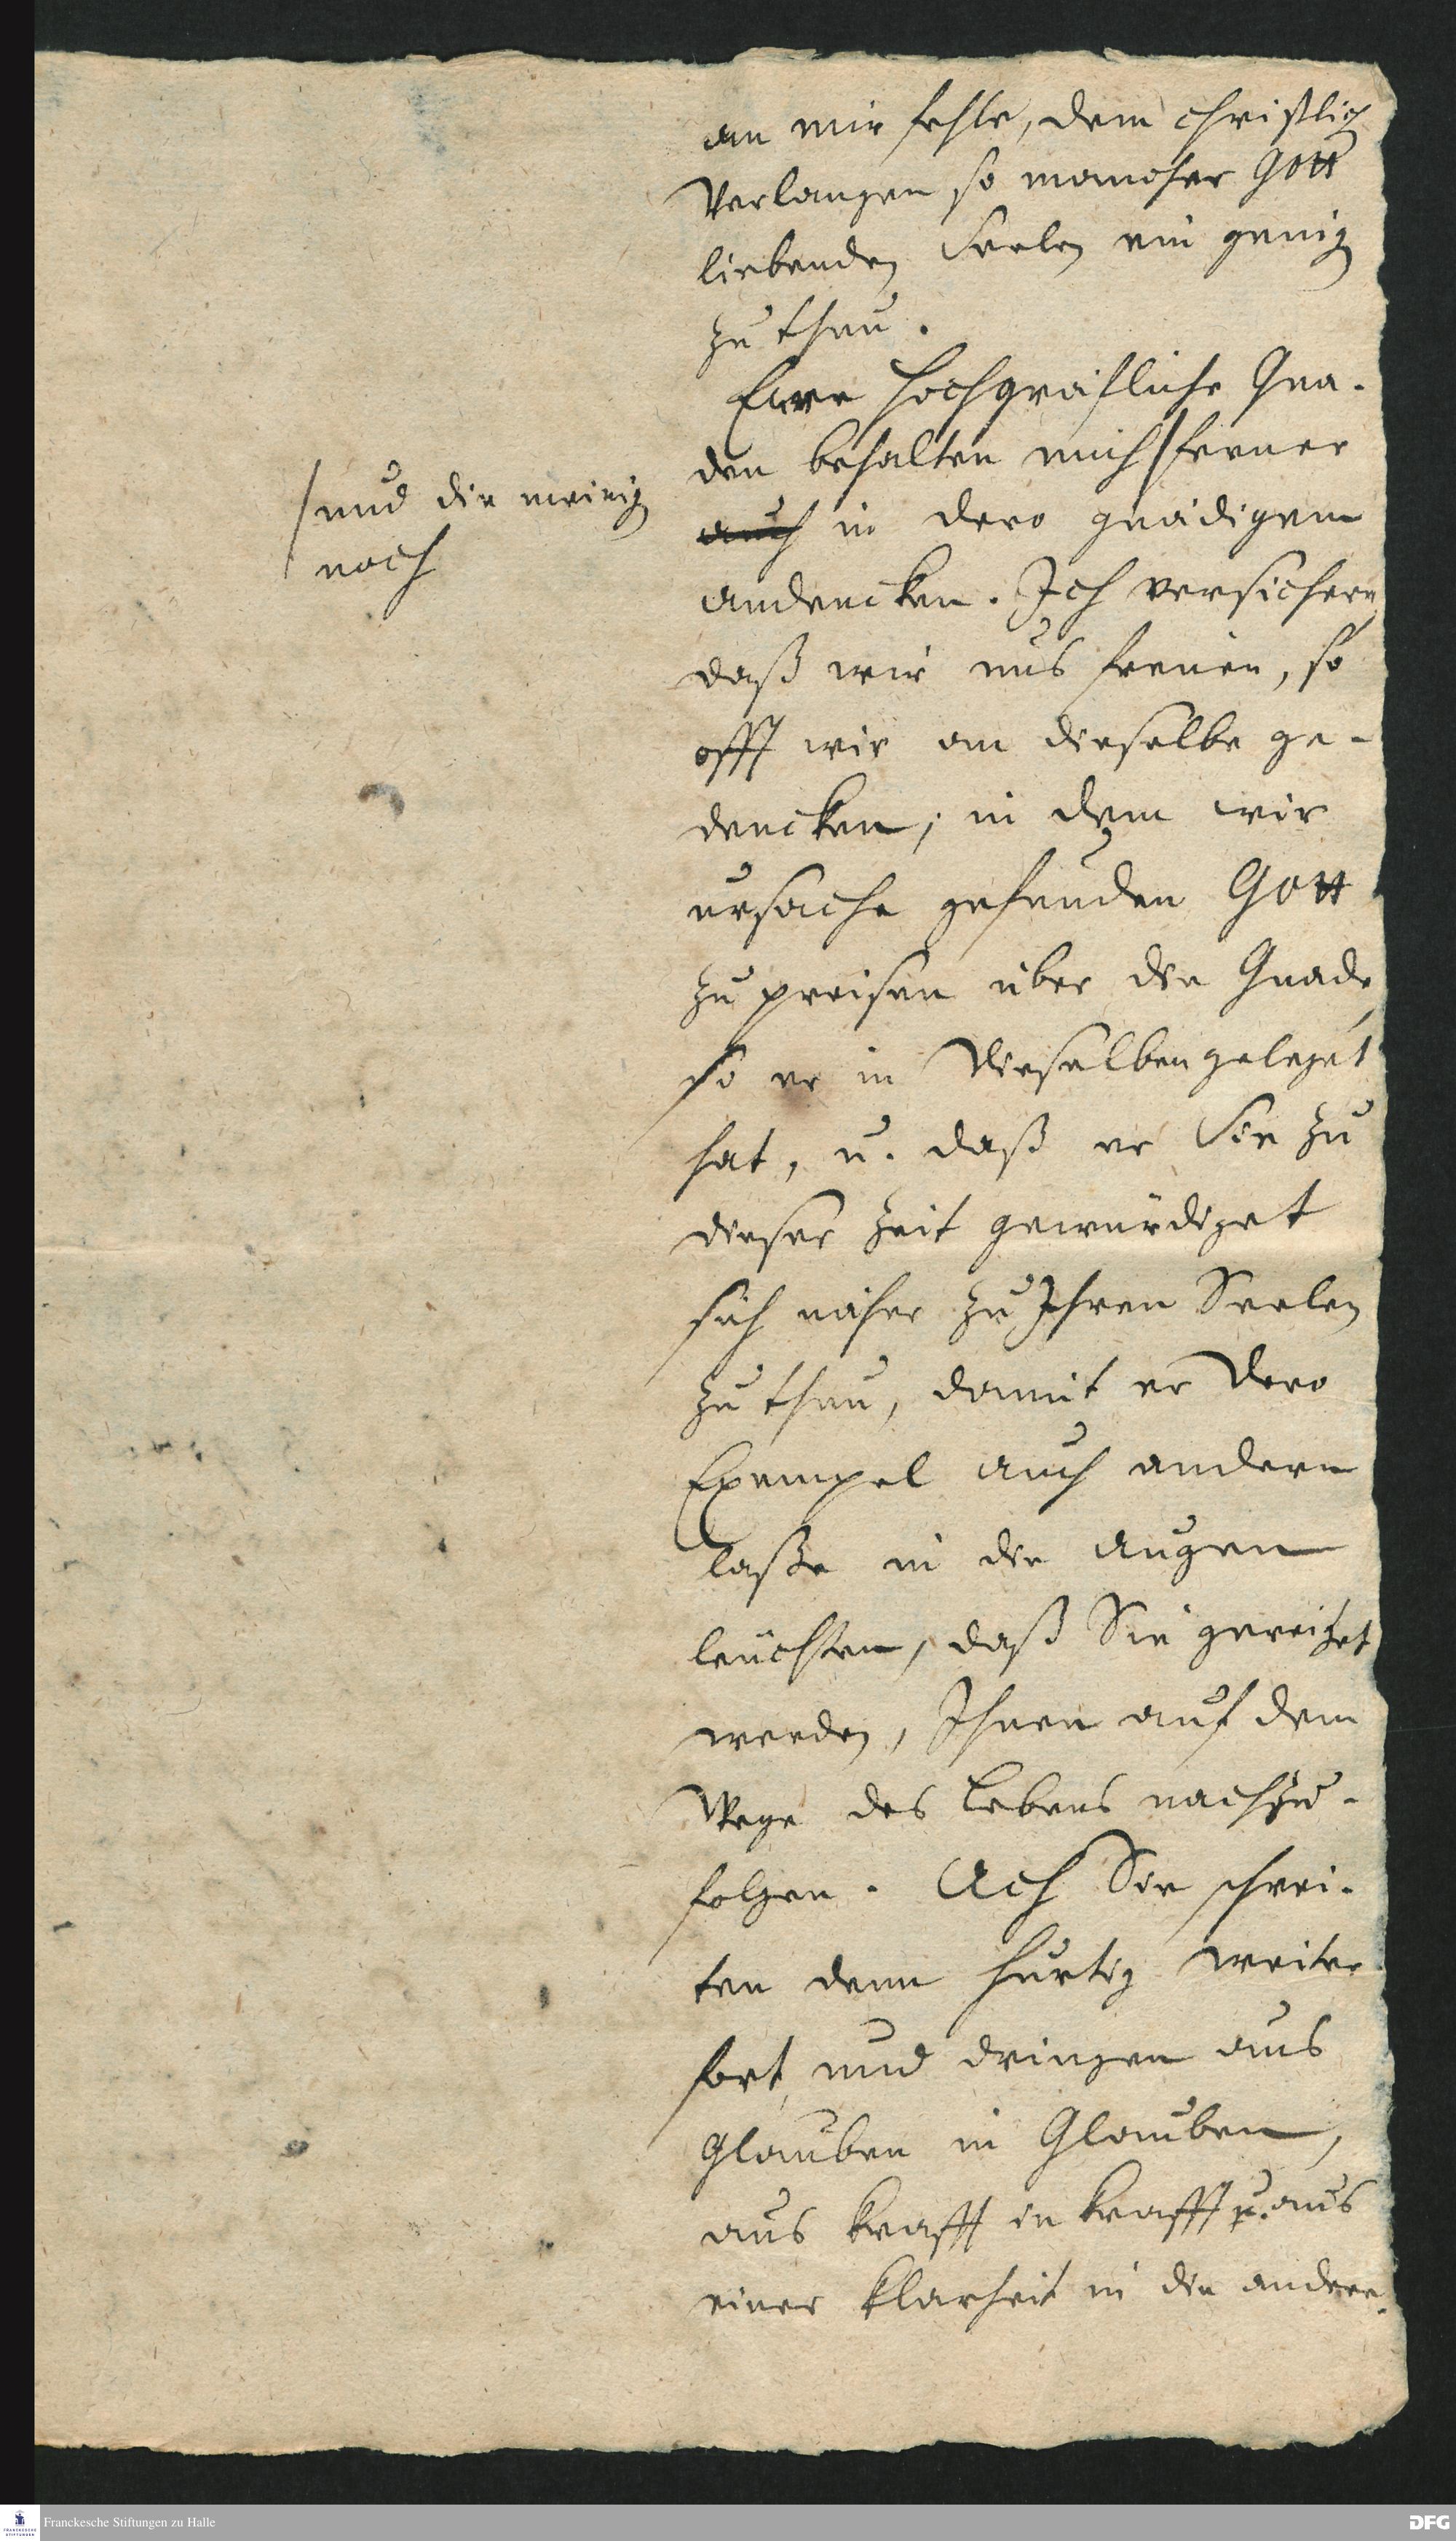 an mir fehle, dem christlich
Verlangen so mancher Gott
liebenden Seelen ein genüg
zu thun.
Eure Hochgräfliche Gna-
den behalten mich / ferner
/ und die meinig
noch
auch in dero gnädigem
andencken. Ich versichere
daß wir uns freuen, so
offt wir an dieselbe ge-
dencken, in dem wir
ursache gefunden Gott
zu preisen über die Gnade,
so er in Dieselben geleget
hat, u. daß er Sie zu
dieser Zeit gewürdiget
sich näher zu Ihren Seelen
zu thun, damit er Dero
Exempel auch andern
laße in die augen
leuchten, daß Sie gereitzet
werden, Ihnen auf dem
Wege des Lebens nachzu-
folgen. Ach Sie schrei-
ten denn hurtig weiter
fort und dringen aus
Glauben in Glauben,
aus Krafft in Krafft u. aus
einer Klarheit in die andere.
Franckesche Stiftungen zu Halle
DFG